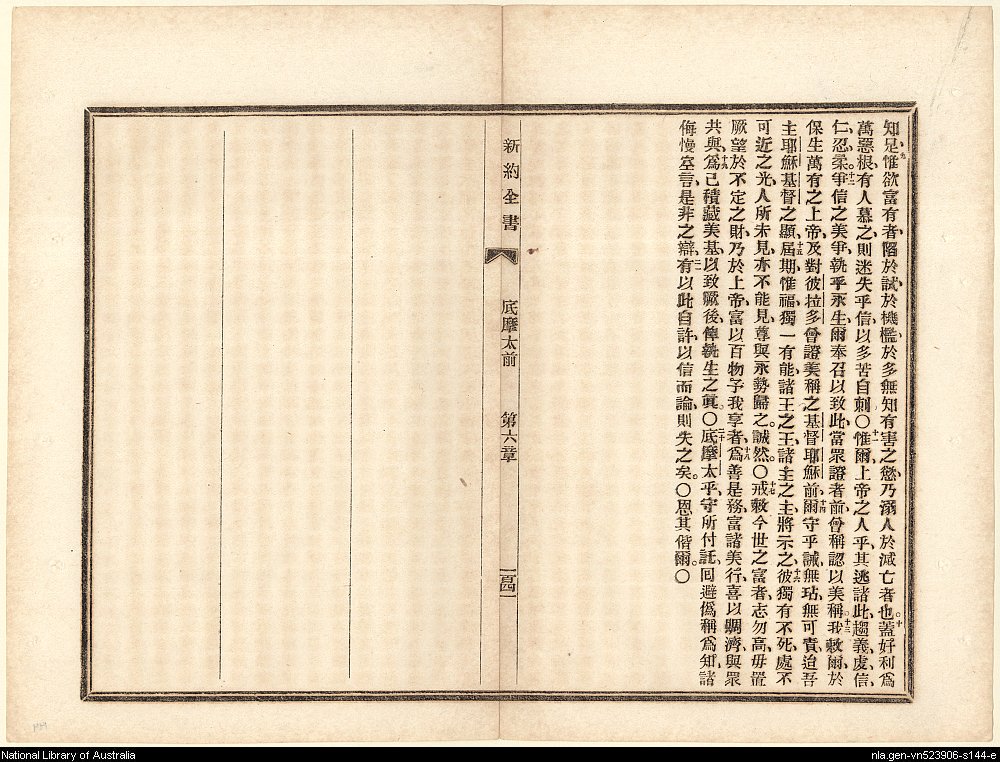 知足、惟欲富有者、陷於試、於機檻、於多無知有害之慾、乃溺人於滅亡者也。蓋好利爲
萬惡根、有人慕之、則迷失乎信、以多苦自刺。〇惟爾上帝之人乎、其逃諸此、趨義、虔、信、
仁、忍、柔。爭信之美爭、執乎永生、爾奉召以致此、當眾證者前、曾稱認以美稱。我敕爾、於
保生萬有之上帝、及對彼拉多曾證美稱之基督耶穌前、爾守乎誡、無玷、無可責、迨吾
主耶穌基督之顯、屆期、惟福獨一有能、諸王之王、諸主之主、將示之、彼獨有不死、處不
可近之光、人所未見、亦不能見、尊與永勢歸之、誠然。〇戒敕今世之富者、志勿高、毋置
厥望於不定之財、乃於上帝、富以百物予我享者、爲善是務、富諸美行、喜以賙濟、與眾
共與、爲己積藏美基、以致厥後、俾執生之眞。〇底摩太乎、守所付託、囘避僞稱爲知、諸
侮慢空言、是非之辯、有以此自許、以信而論、則失之矣。〇恩其偕爾。〇
新約全書
底摩太前
第六章
百四一
National Library of Australia
nla.gen-vn523906-s144-e